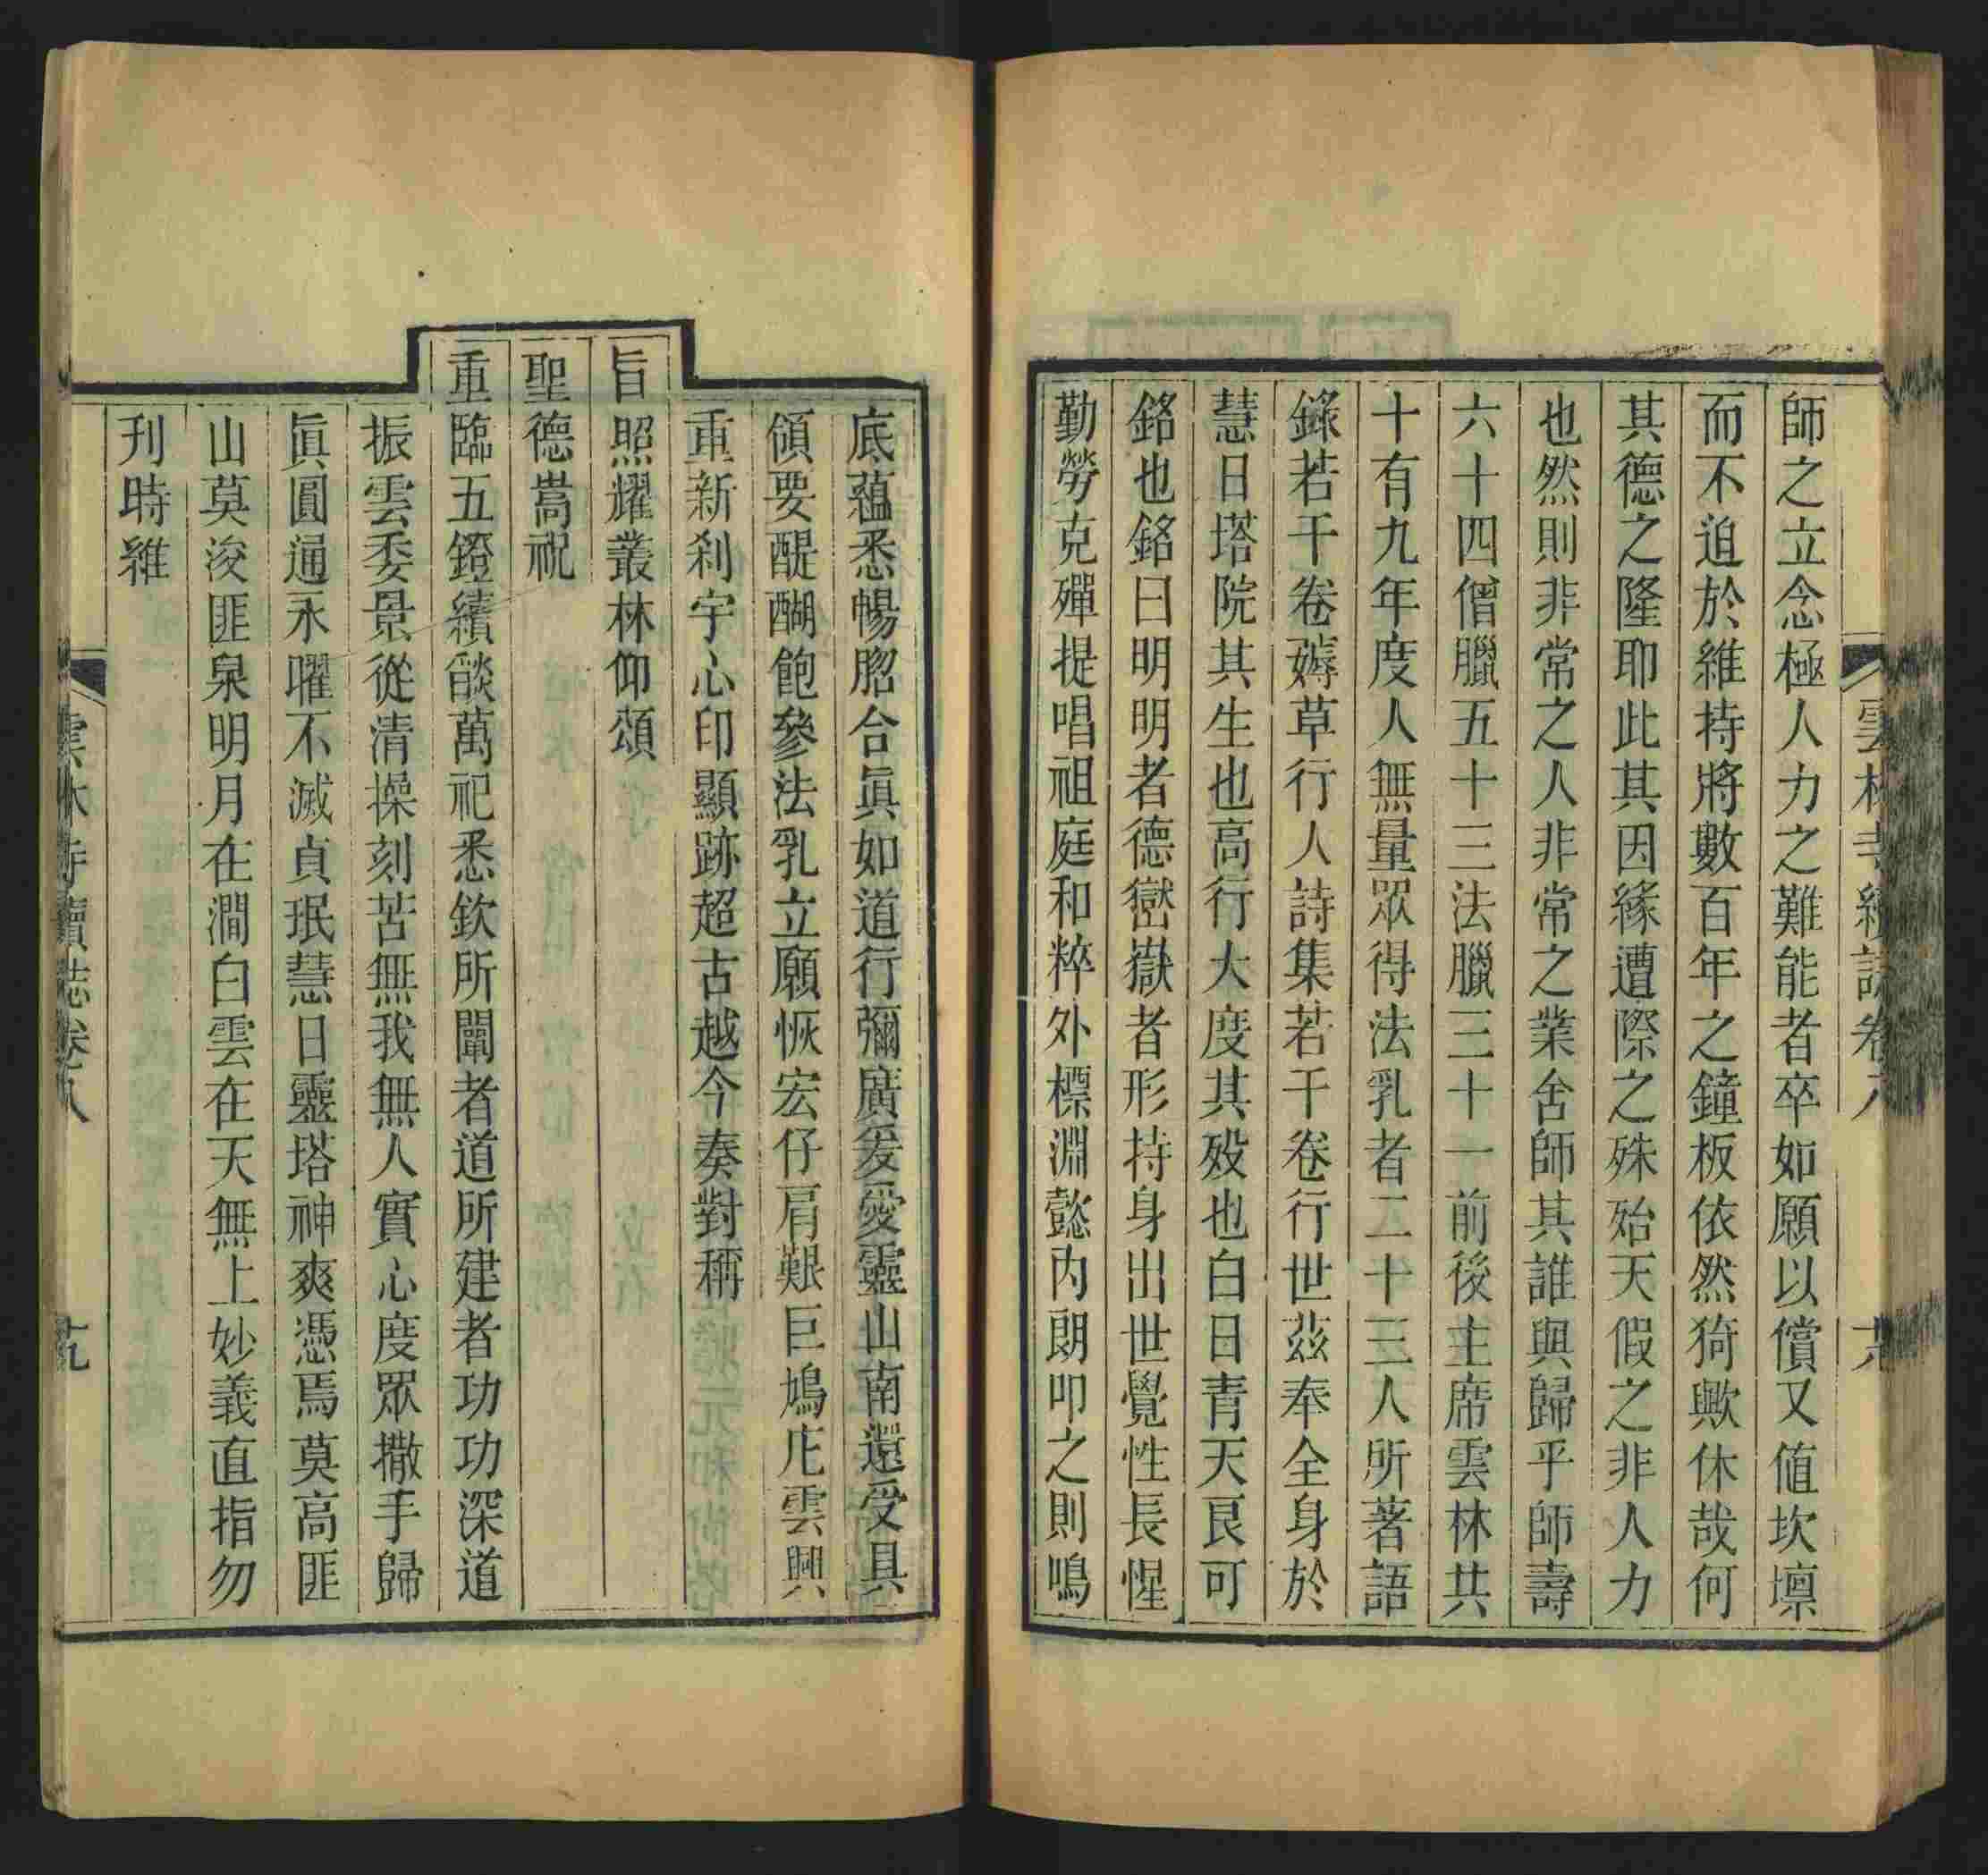 師之立念極人力之難能者卒如願以償又值坎壈
而不迫於維持將數百年之鐘板依然猗歟休哉何
其德之隆耶此其因緣遭際之殊殆天假之非人力
也然則非常之人非常之業舍師其誰與歸乎師壽
六十四僧臘五十三法臘三十一前後主席雲林共
十有九年度人無量眾得法乳者二十三人所著語
錄若干卷薅草行人詩集若干卷行世茲奉全身於
慧日塔院其生也高行大度其歿也白日青天艮可
銘也銘曰明明者德嶽嶽者形持身出世覺性長惺
勤勞克殫提唱祖庭和粹外標淵懿內朗叩之則鳴
雲林寺續誌卷八
底蘊悉暢脗合眞如道行彌廣爰愛靈山南還受具
領要醍醐飽參法乳立願恢宏仔肩艱巨鳩庀雲興
重新刹宇心印顯跡超古越今奏對稱
旨照耀叢林仰頌
聖德嵩祝
重臨五鐙續燄萬祀悉欽所闡者道所建者功功深道
振雲委景從清操刻苦無我無人實心度眾撒手歸
眞圓通永曜不滅貞珉慧日靈塔神爽憑焉莫高匪
山莫浚匪泉明月在澗白雲在天無上妙義直指勿
刊時維
雲林寺續誌卷八